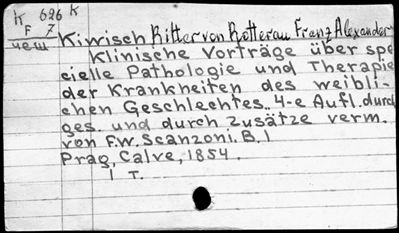 K 626 K
F 7
чеш
Kiwisch Ritter von Rotterau Franz Alexander
Klinische Vorträge über spe
cielle Pathologie und Therapie
der Krankheiten des weibli-
chen Geschlechtes. 4-e Aufl. durch
ges. und durch Zusätze verm.
von F.W. Scanzoni. B. 1
Prag, Calve, 1854.
1 T.